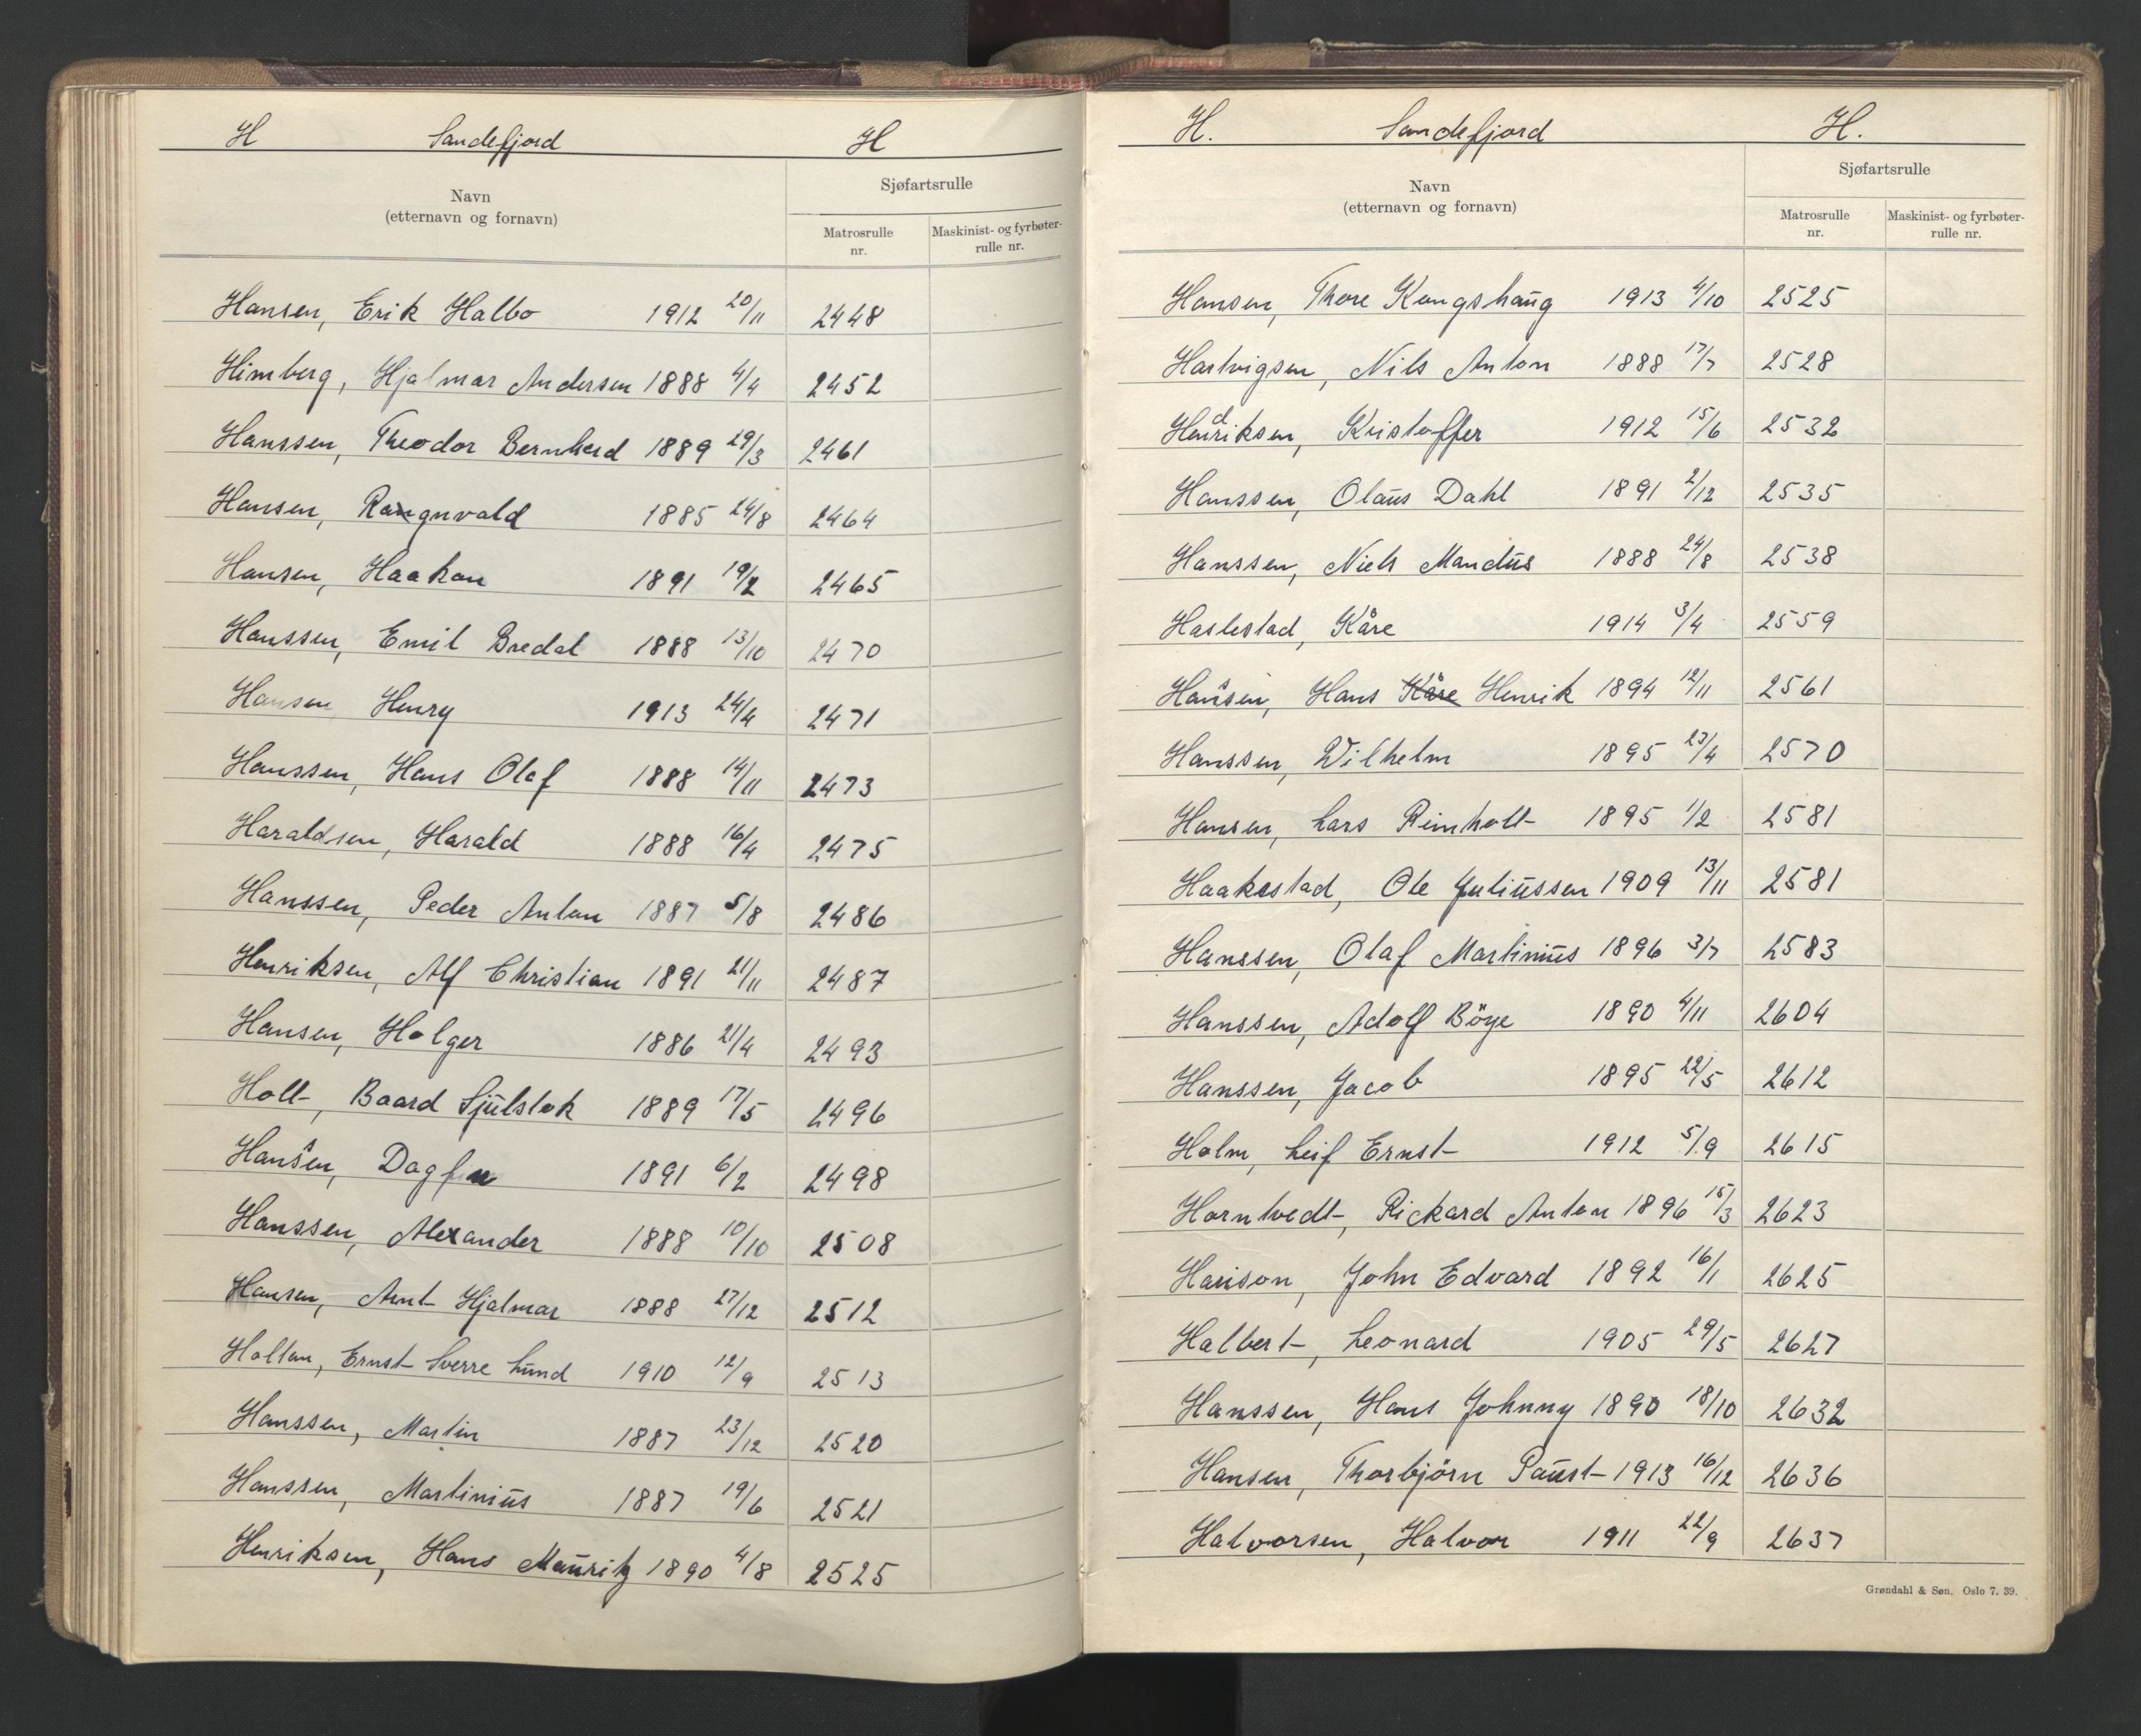 H Sandefjord H
Navn
(etternavn og fornavn)
Sjøfartsrulle
Matrosrulle nr.
Maskinist- og fyrbøter-rulle nr.
Hansen, Erik Halbo 1912 20/11 2448
Himberg, Hjalmar Andersen 1888 4/4 2452
Hanssen, Theodor Bernherd 1889 29/3 2461
Hansen, Rangnvald 1885 24/8 2464
Hansen, Haakon 1891 19/2 2465
Hanssen, Emil Bredal 1888 13/10 2470
Hansen Henry 1913 24/4 2471
Hanssen, Hans Olaf 1888 14/11 2473
Haraldsen, Harald 1888 16/4 2475
Hanssen, Peder Anton 1887 5/8 2486
Henriksen, Alf Christian 1891 21/11 2487
Hansen, Holger 1886 21/4 2493
Holt, Baard Sjulstok 1889 17/5 2496
Hanssen, Dagfin 1891 6/2 2498
Hanssen, Alexander 1888 10/10 2508
Hansen, Arnt Hjalmar 1888 27/12 2512
Holtan, Ernst Sverre Lund 1910 12/9 2513
Hanssen, Martin 1887 23/12 2520
Hanssen, Martinius 1887 19/6 2521
Henriksen, Hans Mauritz 1890 4/8 2525
H. Sandefjord H.
Navn
(etternavn og fornavn)
Sjøfartsrulle
Matrosrulle nr.
Maskinist- og fyrbøter-rulle nr.
Hansen, Thore Kongshaug 1913 4/10 2525
Hartvigsen, Nils Anton 1888 17/7 2528
Hendriksen, Kristoffer 1912 15/6 2532
Hanssen, Olaus Dahl 1891 2/12 2535
Hanssen, Niels Mandus 1888 24/8 2538
Haslestad, Kåre 1914 3/4 2559
Hanssen, Hans Kåre Henrik 1894 12/11 2561
Hanssen, Wilhelm 1895 23/4 2570
Hansen, Lars Reinholt 1895 1/2 2581
Haakestad, Ole Juliussen 1909 13/11 2581
Hanssen, Olaf Martinius 1896 3/7 2583
Hanssen, Adolf Böye 1890 4/11 2604
Hanssen, Jacob 1895 22/5 2612
Holm, Leif Ernst 1912 5/9 2615
Horntvedt, Rickard Anton 1896 15/3 2623
Harison, John Edvard 1892 16/1 2625
Halbert, Leonard 1905 29/5 2627
Hanssen, Hans Johnny 1890 18/10 2632
Hansen, Thorbjörn Paust 1913 16/12 2636
Halvorsen, Halvor 1911 22/9 2637
Grøndahl & Søn. Oslo 7. 39.